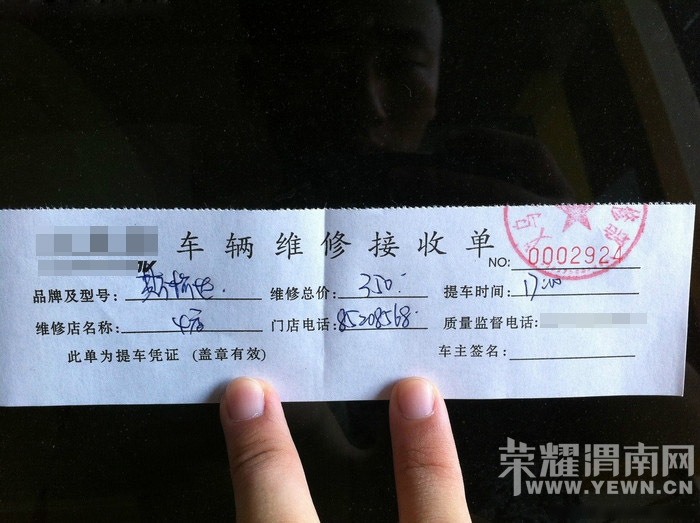 车辆维修接收单
NO: 0002924
品牌及型号: 维修总价: 350. 提车时间: 17:00
维修店名称: 4店 门店电话: 85208568. 质量监督电话:
此单为提车凭证 (盖章有效) 车主签名:
荣耀渭南网
WWW.YEWN.CN